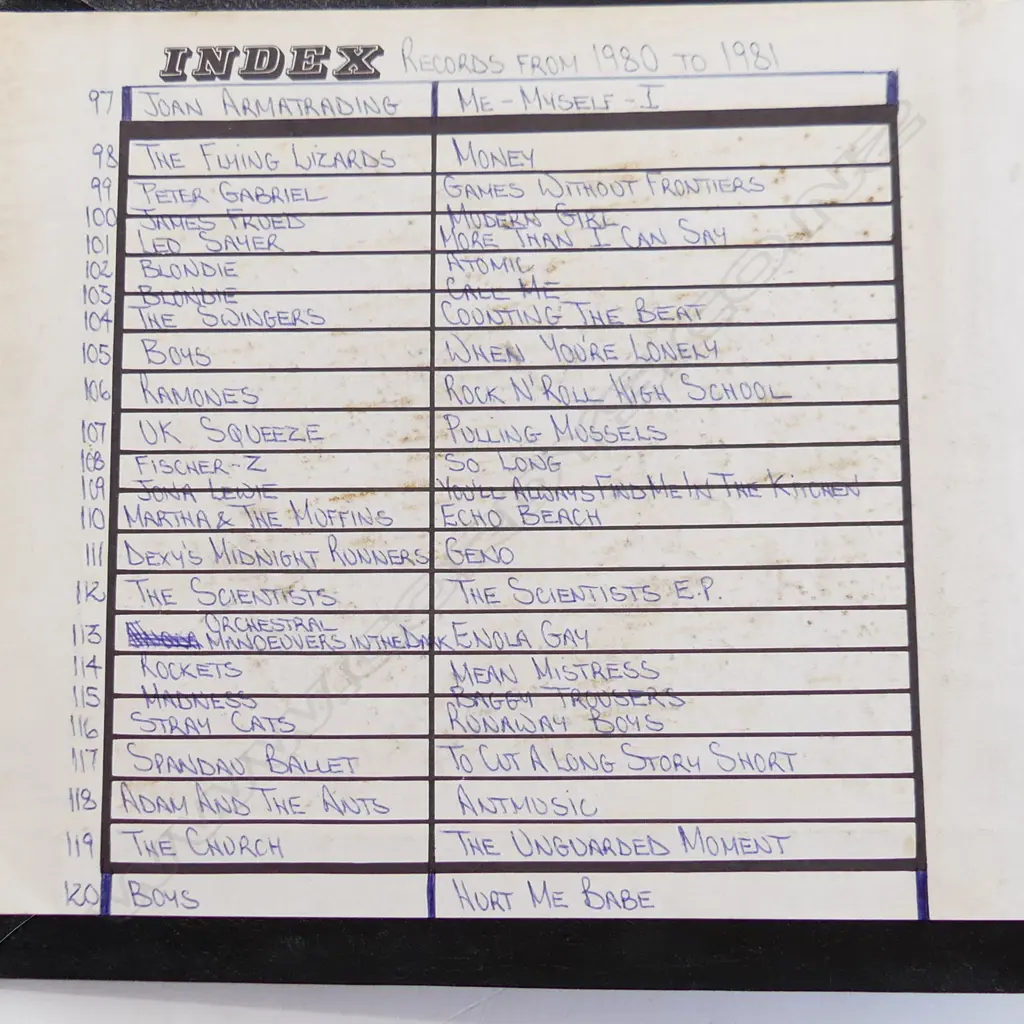 INDEX RECORDS FROM 1980 TO 1981
97 JOAN ARMATRADING ME-MYSELF-I
98 THE FLYING LIZARDS MONEY
99 PETER GABRIEL GAMES WITHOUT FRONTIERS
100 JAMES FRUED MODERN GIRL
101 LEO SAYER MORE THAN I CAN SAY
102 BLONDIE ATOMIC
103 BLONDIE CALL ME
104 THE SWINGERS COUNTING THE BEAT
105 BOYS WHEN YOU'RE LONELY
106 RAMONES ROCK N'ROLL HIGH SCHOOL
107 UK SQUEEZE PULLING MUSSELS
108 FISCHER-Z SO LONG
109 JONA LEWIE YOU'LL ALWAYS FIND ME IN THE KITCHEN
110 MARTHA & THE MUFFINS ECHO BEACH
111 DEXY'S MIDNIGHT RUNNERS GENO
112 THE SCIENTISTS THE SCIENTISTS E.P.
113 ORCHESTRAL
MANOEUVERS IN THE DARK ENOLA GAY
114 ROCKETS MEAN MISTRESS
115 MADNESS BAGGY TROUSERS
116 STRAY CATS RUNAWAY BOYS
117 SPANDAU BALLET TO CUT A LONG STORY SHORT
118 ADAM AND THE ANTS ANTMUSIC
119 THE CHURCH THE UNGUARDED MOMENT
120 BOYS HURT ME BABE